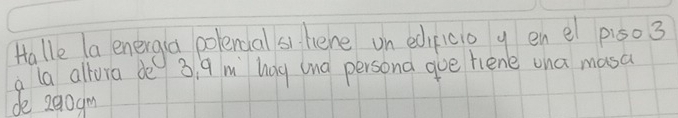 Halle la energia potencial si tiene un edificio y en el piso 3
a la altura de 3,9 m hay una persona que tiene una masa
de 290gm